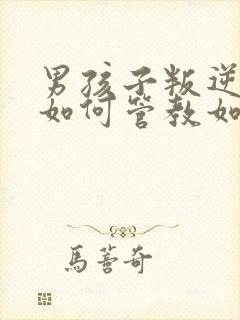 男孩子叛逆
如何管教如
馬薔奇